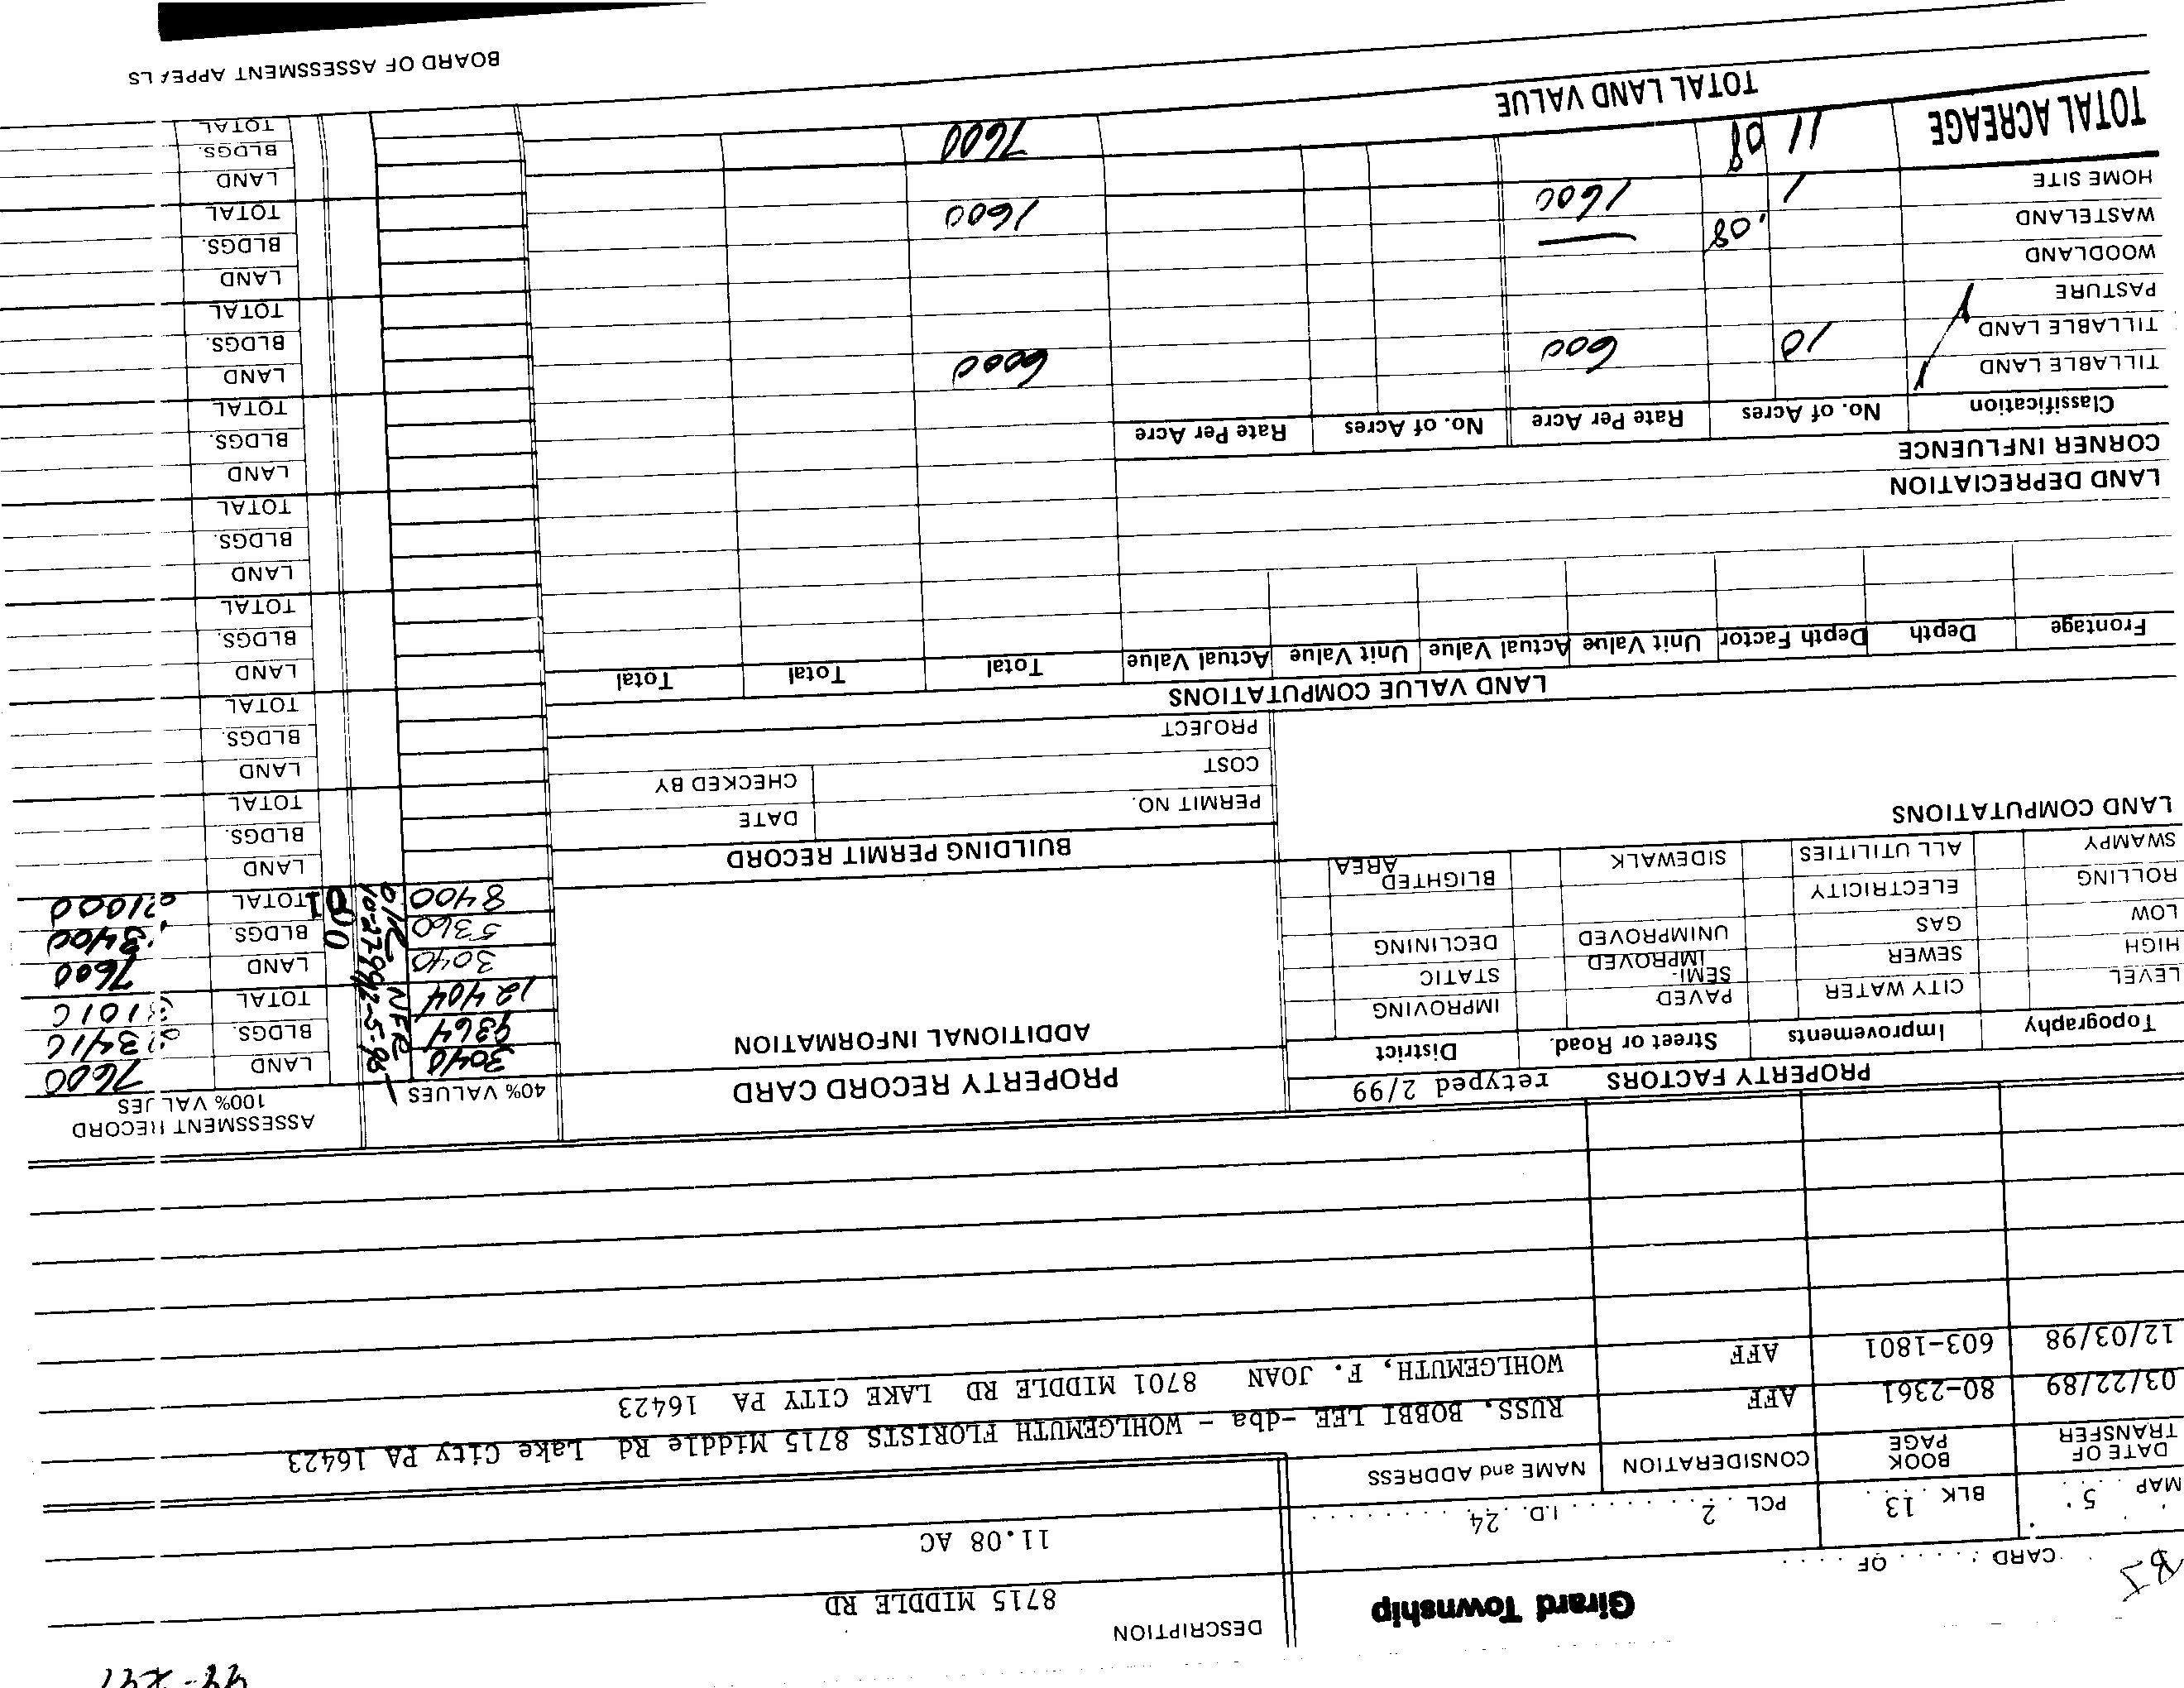 Girard Township
DESCRIPTION
8715 MIDDLE RD
CARD OF
11.08 AC
MAP 5 BLK 13 PCL 2 I.D. 24
DATE OF TRANSFER BOOK PAGE CONSIDERATION NAME and ADDRESS
03/22/89 80-2361 AFF RUSS, BOBBI LEE -dba - WOHLGEMUTH FLORISTS 8715 Middle Rd Lake City PA 16423
12/03/98 603-1801 AFF WOHLGEMUTH, F. JOAN 8701 MIDDLE RD LAKE CITY PA 16423
PROPERTY FACTORS retyped 2/99
Topography Improvements Street or Road District
LEVEL CITY WATER PAVED IMPROVING
HIGH SEWER SEMI-IMPROVED STATIC
LOW GAS UNIMPROVED DECLINING
ROLLING ELECTRICITY
SWAMPY ALL UTILITIES SIDEWALK BLIGHTED AREA
LAND COMPUTATIONS
PROPERTY RECORD CARD
ADDITIONAL INFORMATION
BUILDING PERMIT RECORD
PERMIT NO. DATE
COST CHECKED BY
PROJECT
40% VALUES
3040
9364
12404
3040
5360
8400
NFR
10-27-99
001
ASSESSMENT RECORD
100% VALUES
LAND 7600
BLDGS. 23410
TOTAL
LAND 7600
BLDGS. 13400
TOTAL 21000
LAND
BLDGS.
TOTAL
LAND
BLDGS.
TOTAL
LAND
BLDGS.
TOTAL
LAND
BLDGS.
TOTAL
LAND
BLDGS.
TOTAL
LAND
BLDGS.
TOTAL
LAND
BLDGS.
TOTAL
LAND
BLDGS.
TOTAL
LAND VALUE COMPUTATIONS
Frontage Depth Depth Factor Unit Value Actual Value Unit Value Actual Value Total Total Total
LAND DEPRECIATION
CORNER INFLUENCE
Classification No. of Acres Rate Per Acre No. of Acres Rate Per Acre
TILLABLE LAND
TILLABLE LAND 10 600 6000
PASTURE
WOODLAND
WASTELAND .08
HOME SITE 1 1600 1600
TOTAL ACREAGE 11 08
TOTAL LAND VALUE 7600
BOARD OF ASSESSMENT APPEALS